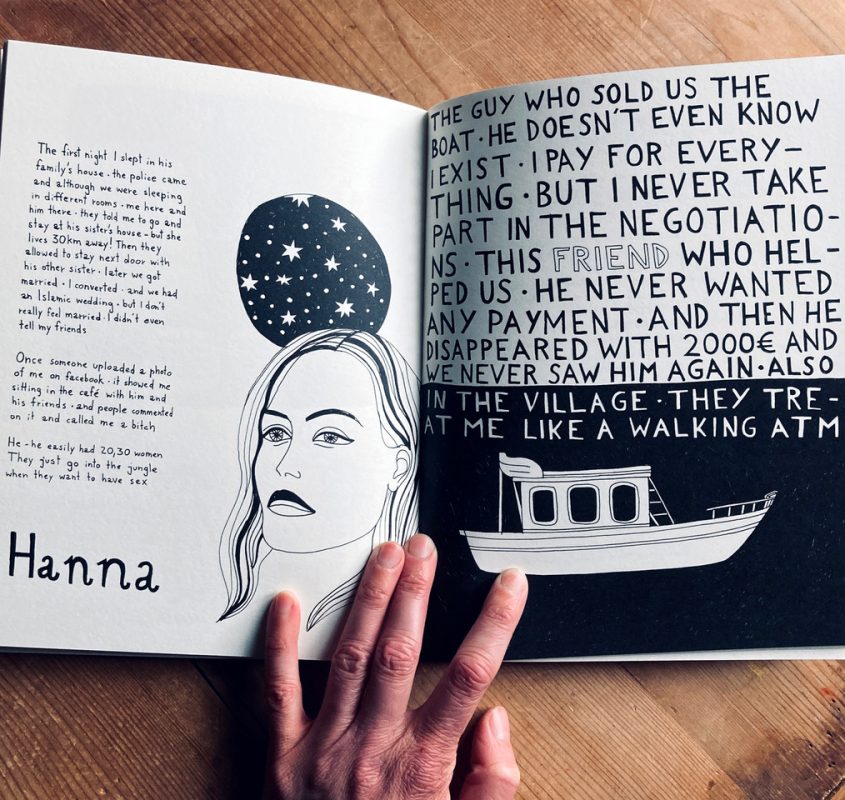 The first night I slept in his
family's house · the police came
and although we were sleeping
in different rooms · me here and
him there · they told me to go and
stay at his sister's house - but she
lives 30km away! Then they
allowed to stay next door with
his other sister · later we got
married · I converted · and we had
an Islamic wedding · but I don't
really feel married · I didn't even
tell my friends
Once someone uploaded a photo
of me on facebook · it showed me
sitting in the café with him and
his friends · and people commented
on it and called me a bitch
He - he easily had 20,30 women
They just go into the jungle
when they want to have sex
Hanna
THE GUY WHO SOLD US THE
BOAT · HE DOESN'T EVEN KNOW
I EXIST · I PAY FOR EVERY-
THING · BUT I NEVER TAKE
PART IN THE NEGOTIATIO-
NS · THIS FRIEND WHO HEL-
PED US · HE NEVER WANTED
ANY PAYMENT · AND THEN HE
DISAPPEARED WITH 2000€ AND
WE NEVER SAW HIM AGAIN · ALSO
IN THE VILLAGE · THEY TRE-
AT ME LIKE A WALKING ATM